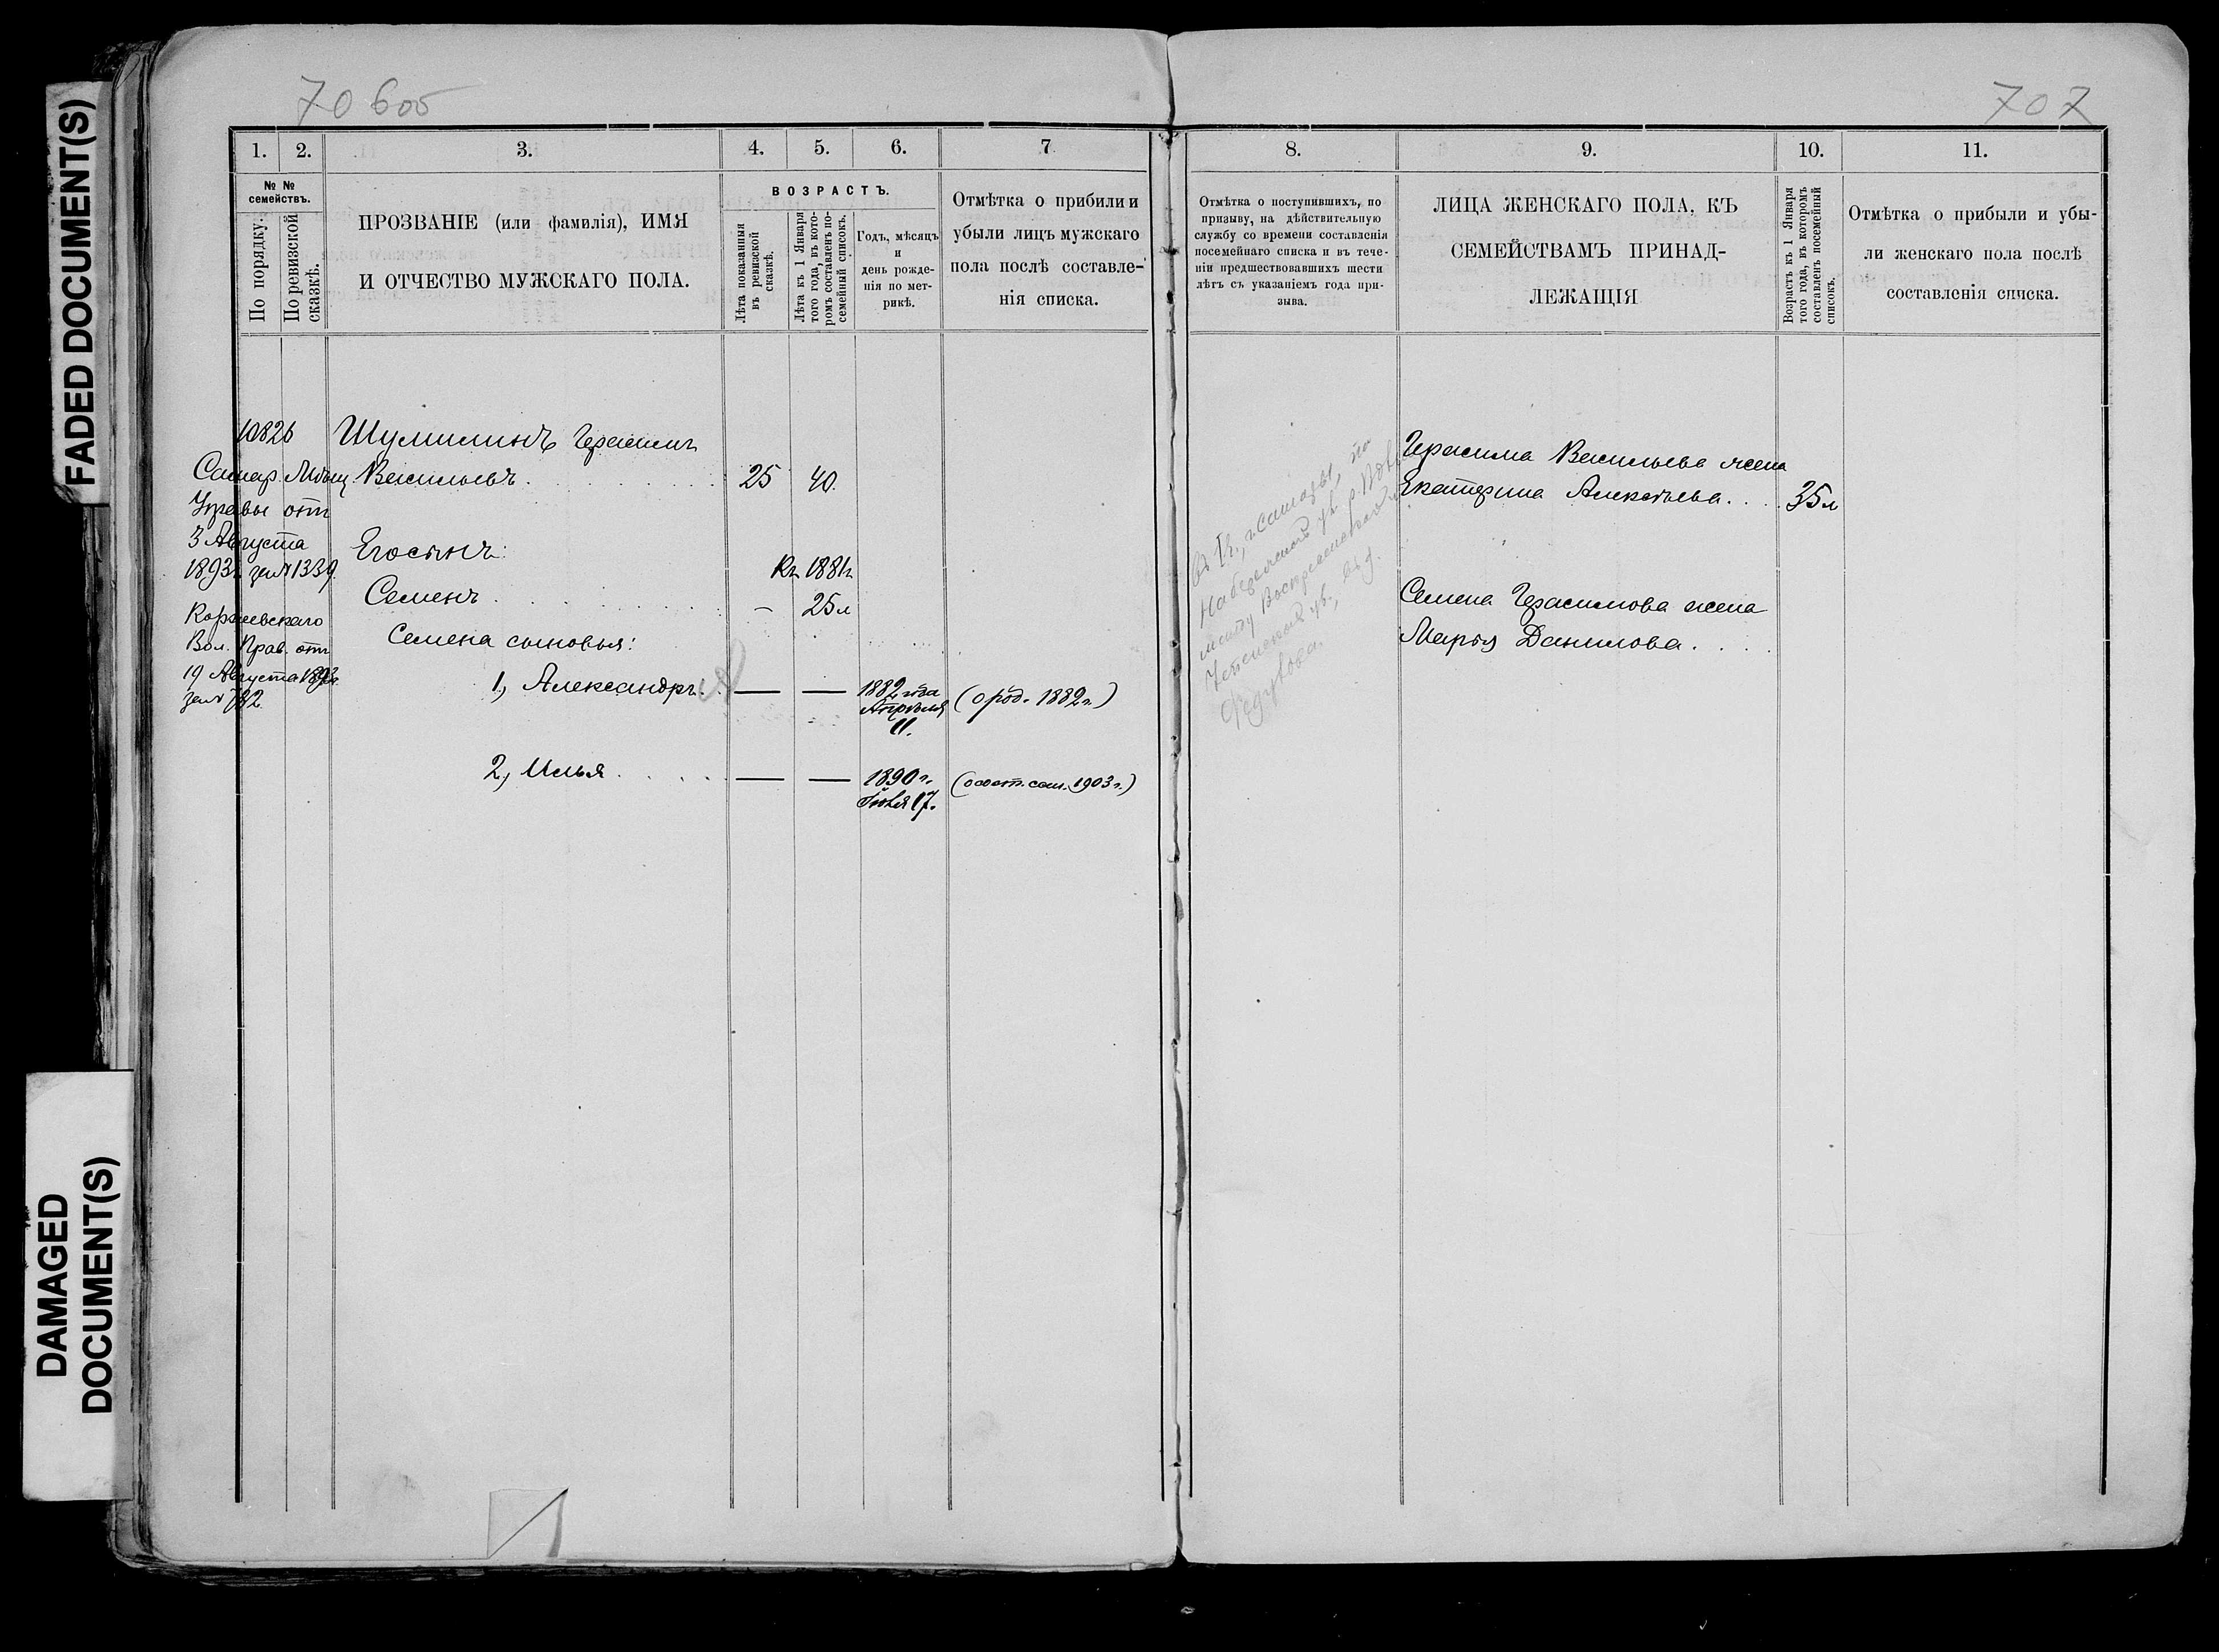 FADED DOCUMENT(S)
DAMAGED
DOCUMENT(S)
70 6об
707
1.
2.
3.
4.
5.
6.
7
№ №
семействъ.
По порядку.
По ревизской
сказкѣ.
ПРОЗВАНІЕ (или фамилія), ИМЯ
И ОТЧЕСТВО МУЖСКАГО ПОЛА.
ВОЗРАСТЪ.
Лѣта показанныя
въ ревизской
сказкѣ.
Лѣта къ 1 Января
того года, въ кото-
ромъ составленъ по-
семейный списокъ.
Годъ, мѣсяцъ
и
день рожде-
нія по мет-
рикѣ.
Отмѣтка о прибыли и
убыли лицъ мужскаго
пола послѣ составле-
нія списка.
8.
9.
10.
11.
Отмѣтка о поступившихъ, по
призыву, на дѣйствительную
службу со времени составленія
посемейнаго списка и въ тече-
ніи предшествовавшихъ шести
лѣтъ съ указаніемъ года при-
зыва.
ЛИЦА ЖЕНСКАГО ПОЛА, КЪ
СЕМЕЙСТВАМЪ ПРИНАД-
ЛЕЖАЩІЯ
Возрастъ къ 1 Января
того года, въ которомъ
составленъ посемейный
списокъ.
Отмѣтка о прибыли и убы-
ли женскаго пола послѣ
составленія списка.
10826
Самар. Мѣщ.
Управы отъ
3 Августа
1893г. за № 1339.
Вол. Прав. отъ
19 Августа 1893г.
за № 782.
Шумилинъ Герасимъ
Васильевъ . 25 40.
Его сынъ: Къ 1881г
Семенъ . – 25 л
Семена сыновья:
1, Александръ. — — 1882 года (о род. 1882 г.)
Апрѣля
11.
2, Илья . — — 1890 г. (о сост. сем. 1903 г.)
Іюля 17.
Герасима Васильева жена
Екатерина Алексѣева . . 35 л
Семена Герасимова жена
Марья Данилова . . .